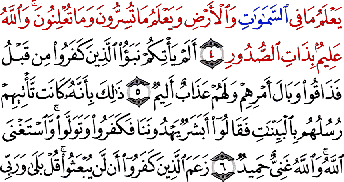 يَعْلَمُ مَا فِى السَّمَٰوَٰتِ وَالْأَرْضِ وَيَعْلَمُ مَا تُسِرُّونَ وَمَا تُعْلِنُونَ ۚ وَاللَّهُ
عَلِيمٌۢ بِذَاتِ الصُّدُورِ ٤ أَلَمْ يَأْتِكُمْ نَبَؤُا۟ الَّذِينَ كَفَرُوا۟ مِن قَبْلُ
فَذَاقُوا۟ وَبَالَ أَمْرِهِمْ وَلَهُمْ عَذَابٌ أَلِيمٌ ٥ ذَٰلِكَ بِأَنَّهُۥ كَانَت تَّأْتِيهِمْ
رُسُلُهُم بِالْبَيِّنَٰتِ فَقَالُوٓا۟ أَبَشَرٌ يَهْدُونَنَا فَكَفَرُوا۟ وَتَوَلَّوا۟ ۚ وَّاسْتَغْنَى
اللَّهُ ۚ وَاللَّهُ غَنِىٌّ حَمِيدٌ ٦ زَعَمَ الَّذِينَ كَفَرُوٓا۟ أَن لَّن يُبْعَثُوا۟ ۚ قُلْ بَلَىٰ وَرَبِّى